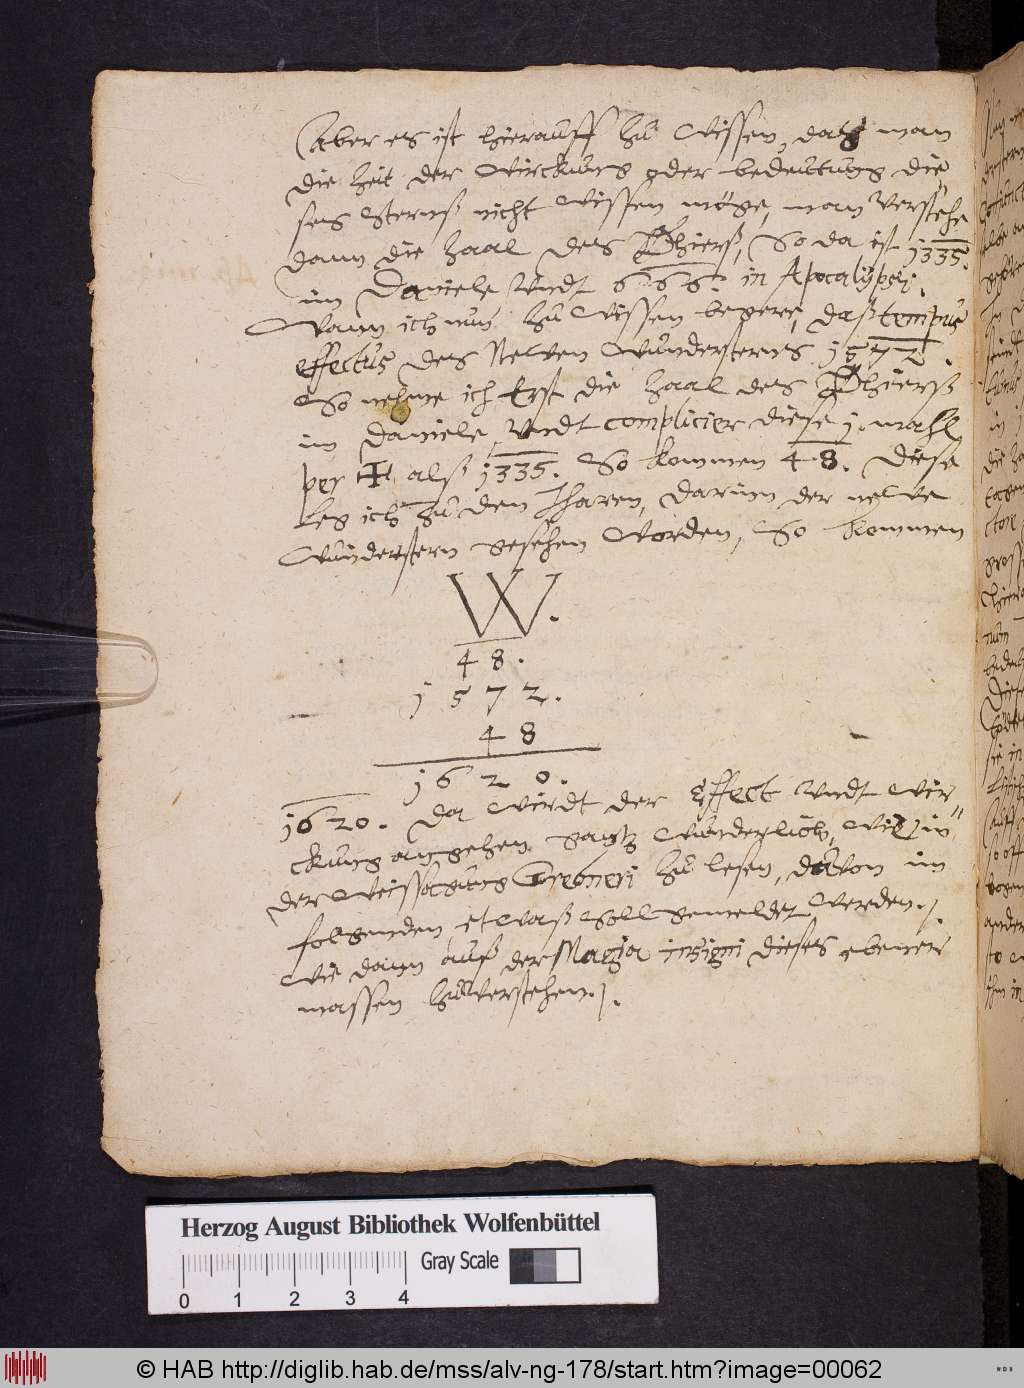 Aber es ist hierauff zu wissen, daß man
die Zeit der Wirckung oder bedeutung die
ses Sternß nicht wissen möge, man verstehe
dann die Zaal des Thierß, So da ist 1335.
im Daniele vndt 666. in Apocalypsi.
Wann ich nun zu wissen begere, daß tempus
effectus des Newen Wundersterns 1572.
So nehme ich Erst die Zaal des Thierß
im Daniele, vndt complicier diese j. mahl
per ✠, alß 1335. So kommen 48. Diese
leg ich zu den Jharen, darinn der newe
Wunderstern gesehen worden, So kommen
W.
48.
1572.
48
1620.
1620. Da wirdt der Effect vndt Wir
ckung angehen gantz wunderlich, wie in
der Weissagung Grebneri zu lesen, davon im
folgenden etwaß soll gemeldet werden.
Wie dann auß der Magia insigni dieses ebener
massen zuverstehen.
Herzog August Bibliothek Wolfenbüttel
Gray Scale
0 1 2 3 4
© HAB http://diglib.hab.de/mss/alv-ng-178/start.htm?image=00062